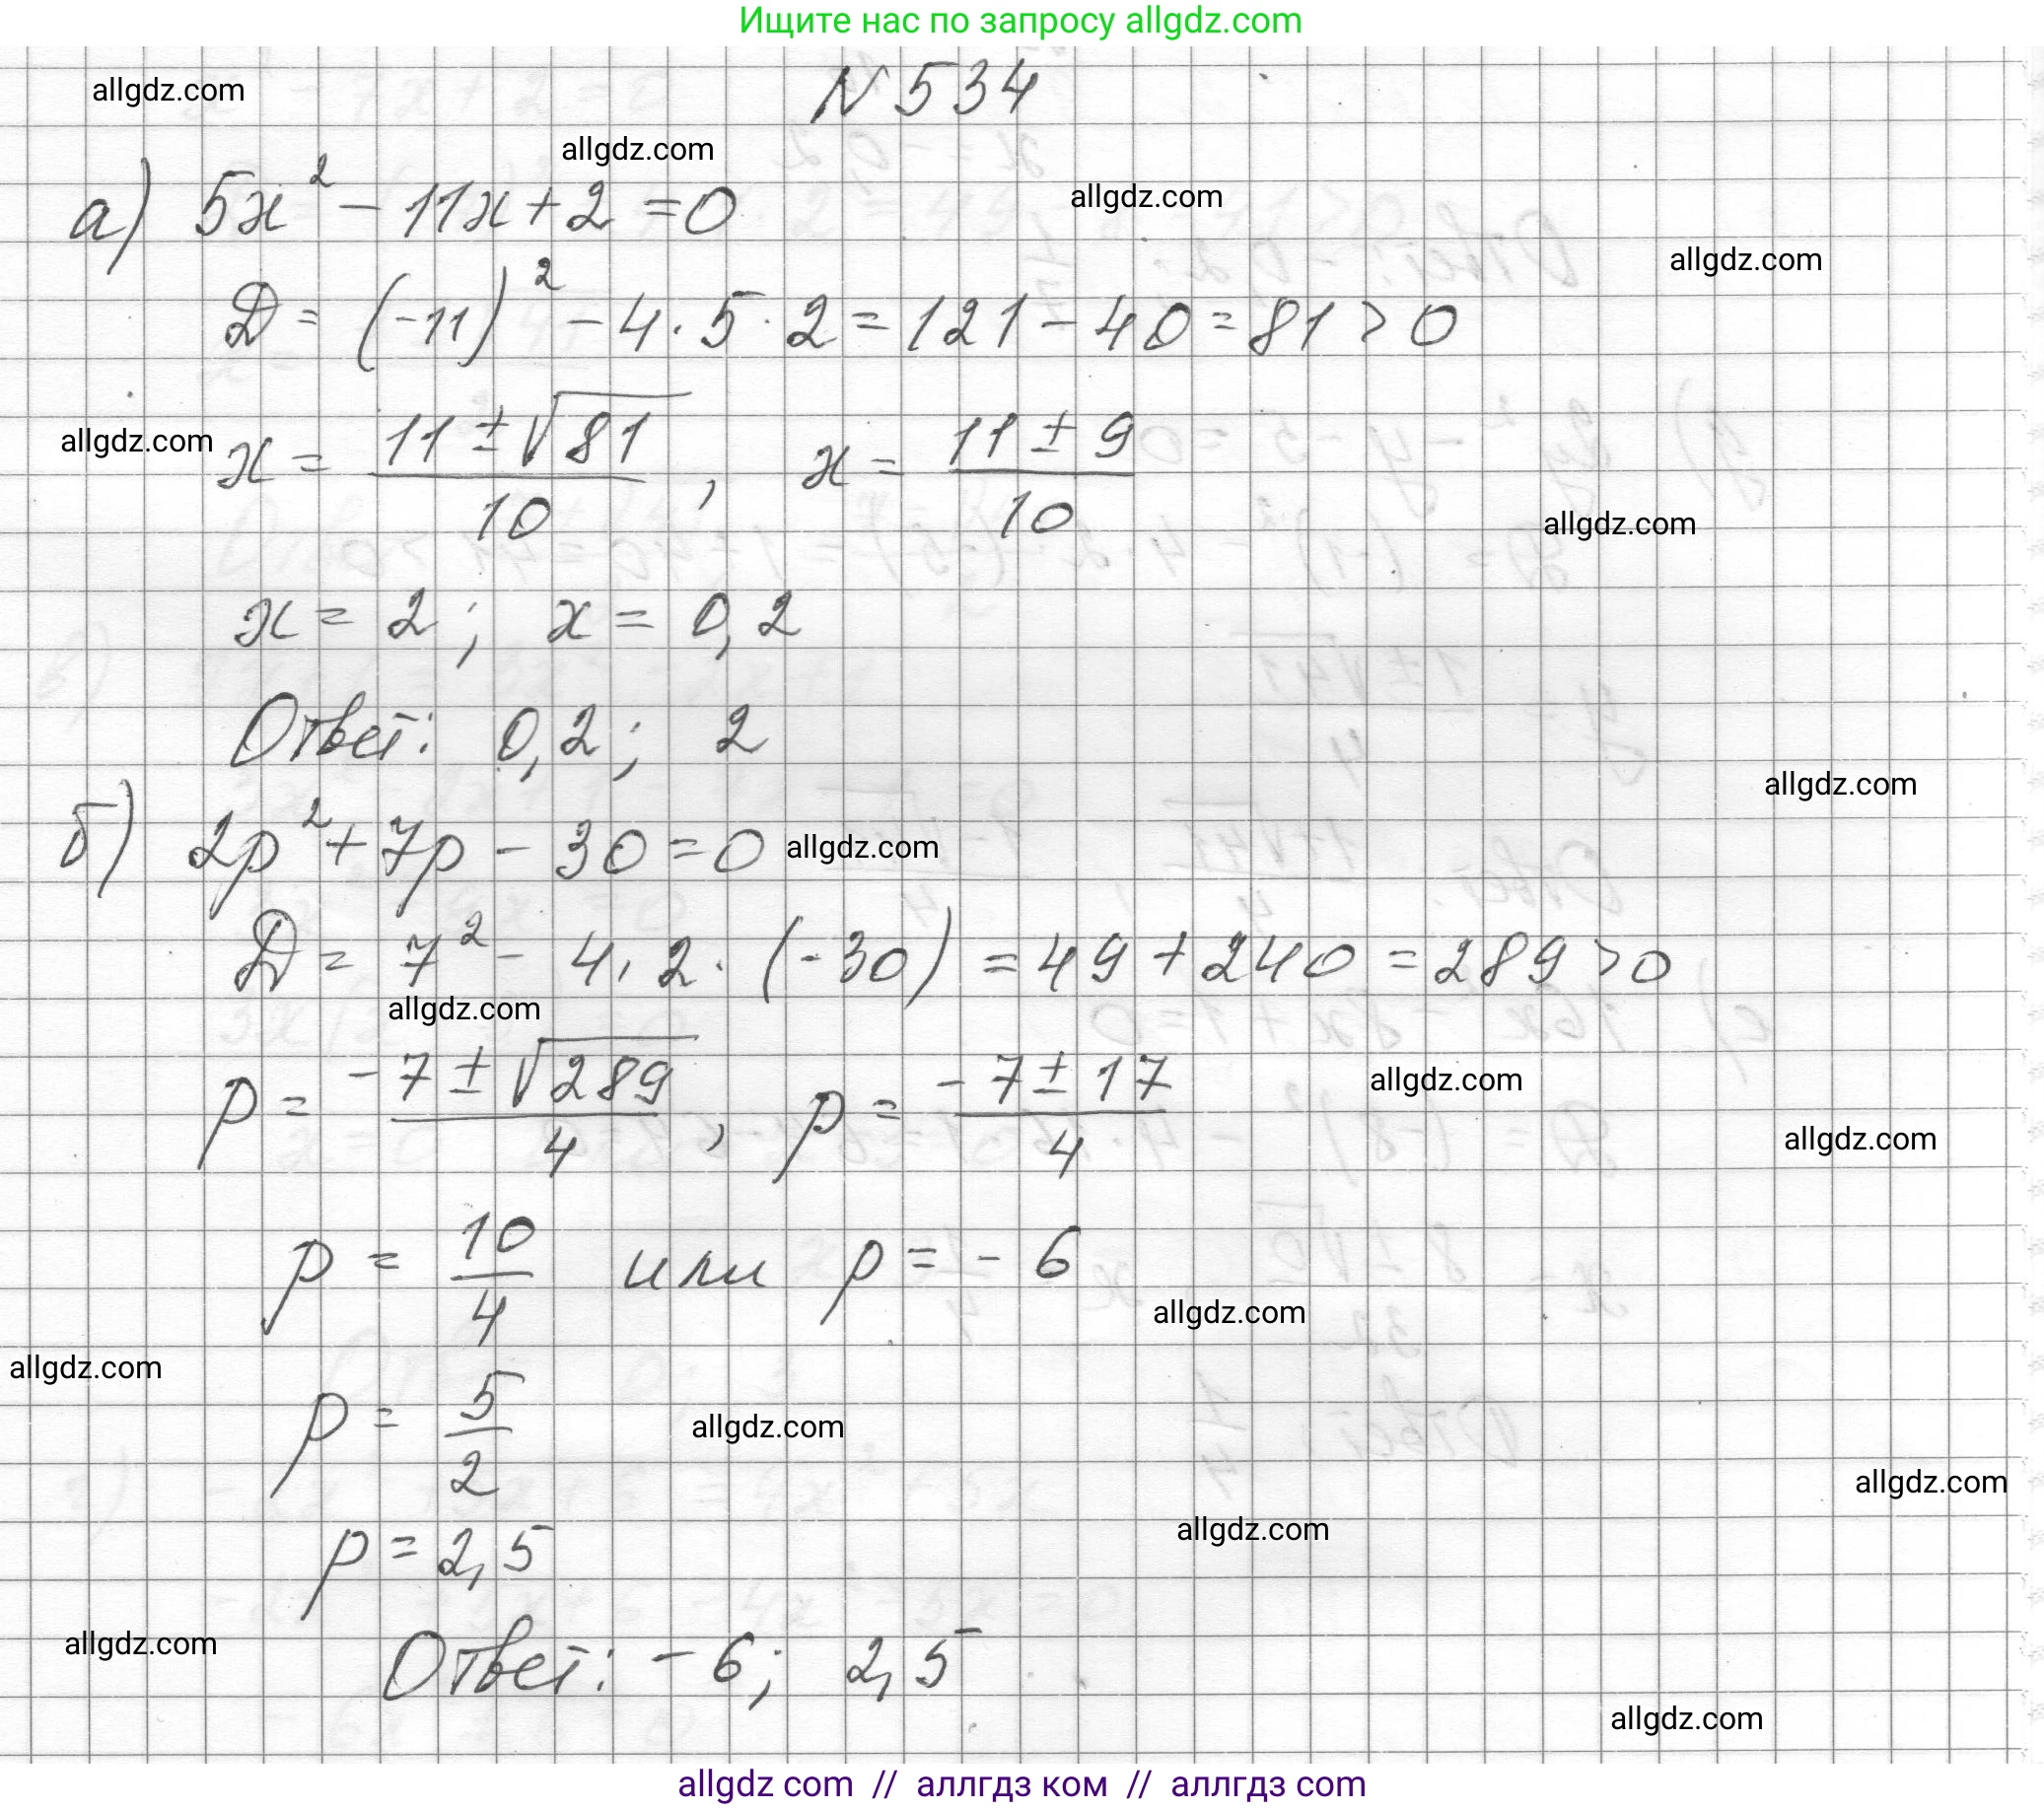 Ищите нас по запросу allgdz.com
N 534
allgdz.com
allgdz.com
allgdz.com
allgdz.com
а) 5x² - 11x + 2 = 0
Д = (-11)² - 4 · 5 · 2 = 121 - 40 = 81 > 0
allgdz.com
x = (11 ± √81)/10 , x = (11 ± 9)/10
allgdz.com
x = 2 ; x = 0,2
Ответ: 0,2 ; 2
allgdz.com
б) 2p² + 7p - 30 = 0
allgdz.com
Д = 7² - 4 · 2 · (-30) = 49 + 240 = 289 > 0
allgdz.com
p = (-7 ± √289)/4 , p = (-7 ± 17)/4
allgdz.com
allgdz.com
p = 10/4 или p = - 6
allgdz.com
allgdz.com
p = 5/2
allgdz.com
allgdz.com
allgdz.com
p = 2,5
allgdz.com
Ответ: - 6 ; 2,5
allgdz.com
allgdz com // аллгдз ком // аллгдз com